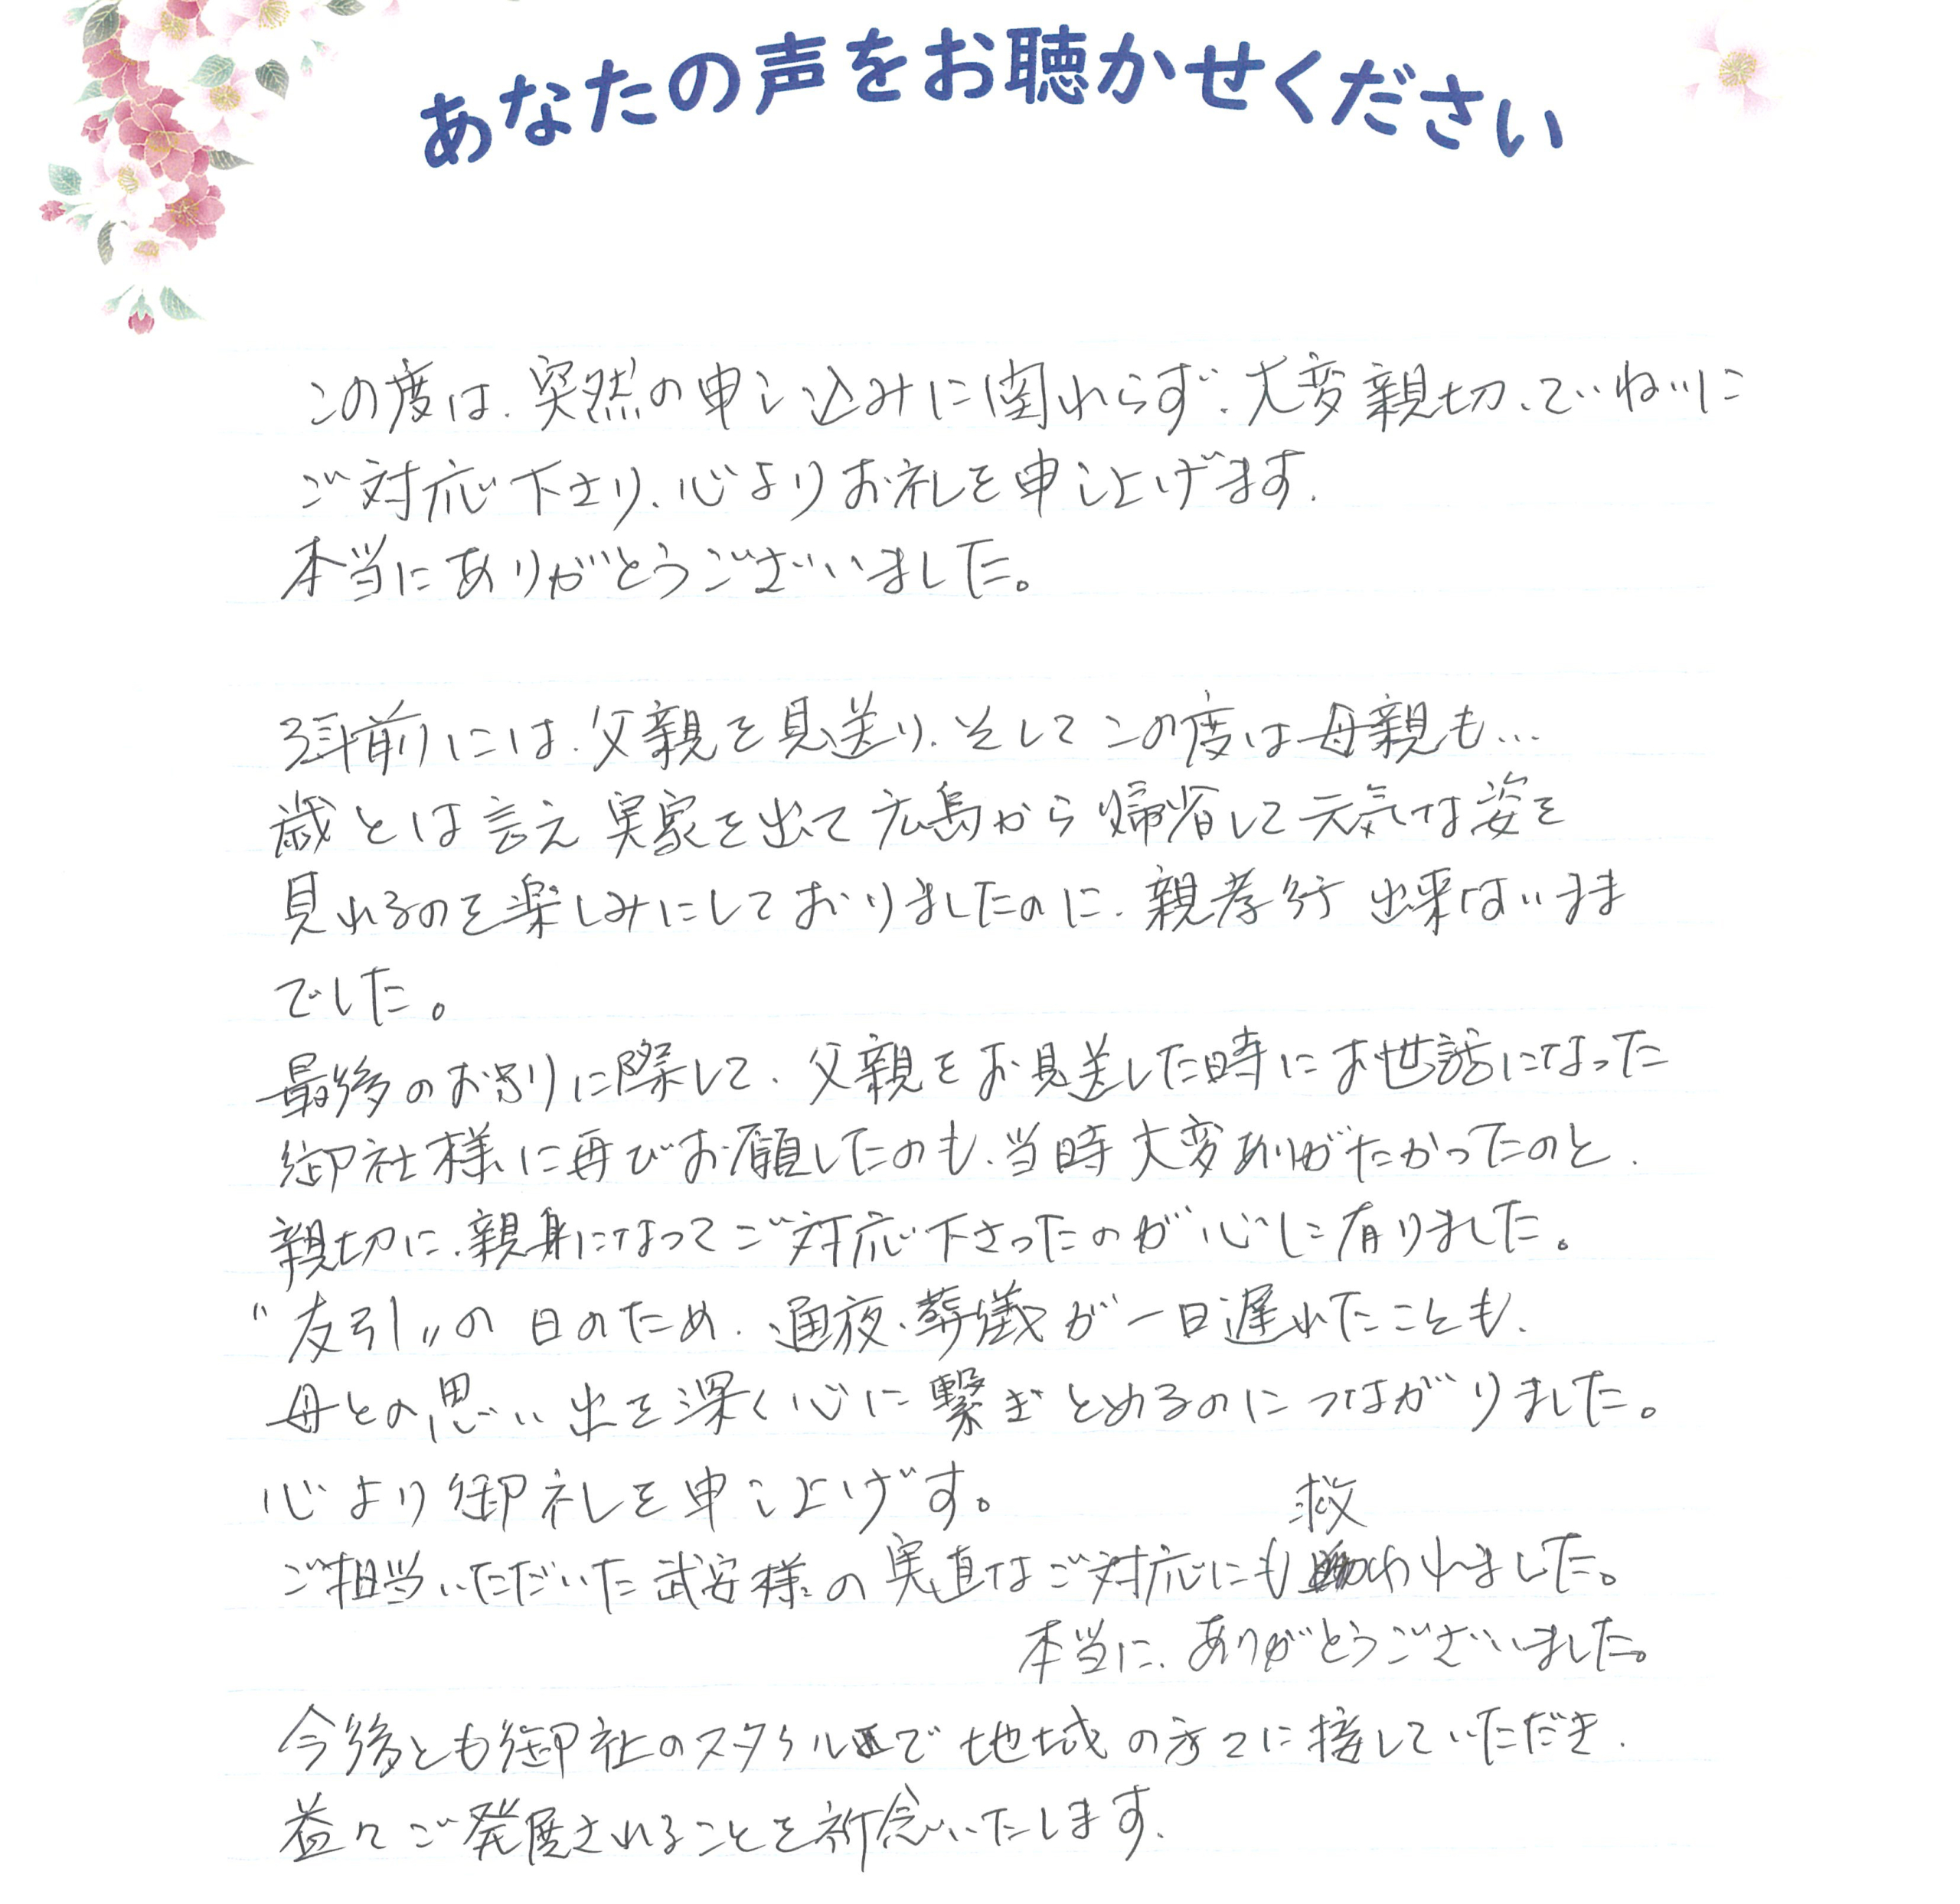 あなたの声をお聴かせください
この度は、突然の申し込みに関わらず、大変親切、ていねいに
ご対応下さり、心よりお礼を申し上げます。
本当にありがとうございました。
3年前には、父親を見送り、そしてこの度は母親も…
歳とは言え実家を出て広島から帰省して元気な姿を
見れるのを楽しみにしておりましたのに、親孝行出来ないまま
でした。
最後のお別りに際して、父親をお見送した時にお世話になった
御社様に再びお願したのも、当時大変ありがたかったのと、
親切に、親身になってご対応下さったのが心に有りました。
"友引"の日のため、通夜、葬儀が一日遅れたことも、
母との思い出を深く心に繋ぎとめるのにつながりました。
心より御礼を申し上げす。
ご担当いただいた武安様の実直なご対応にも救われました。
本当に、ありがとうございました。
今後とも御社のスタイルで地域の方々に接していただき、
益々ご発展されることを祈念いたします。